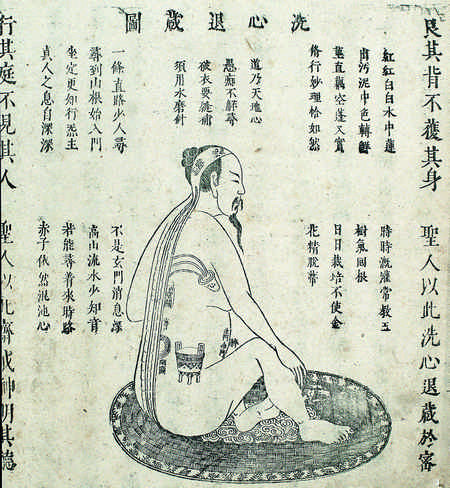 洗心退藏圖
艮其背不獲其身
聖人以此洗心退藏於密
紅紅白白水中蓮
出污泥中色轉鮮
莖直藕空蓬又實
修行妙理恰如然
時時溉灌常教玉
樹氣回根
日日栽培不使金
花精脫蒂
道乃天地心
愚痴不解尋
破衣要縫補
須用水磨針
一條直路少人尋
尋到山根始入門
坐定更知行炁主
真人之息自深深
不是玄門消息深
高山流水少知音
若能尋着來時路
赤子依然混沌心
行其庭不見其人
聖人以此齋戒神明其德